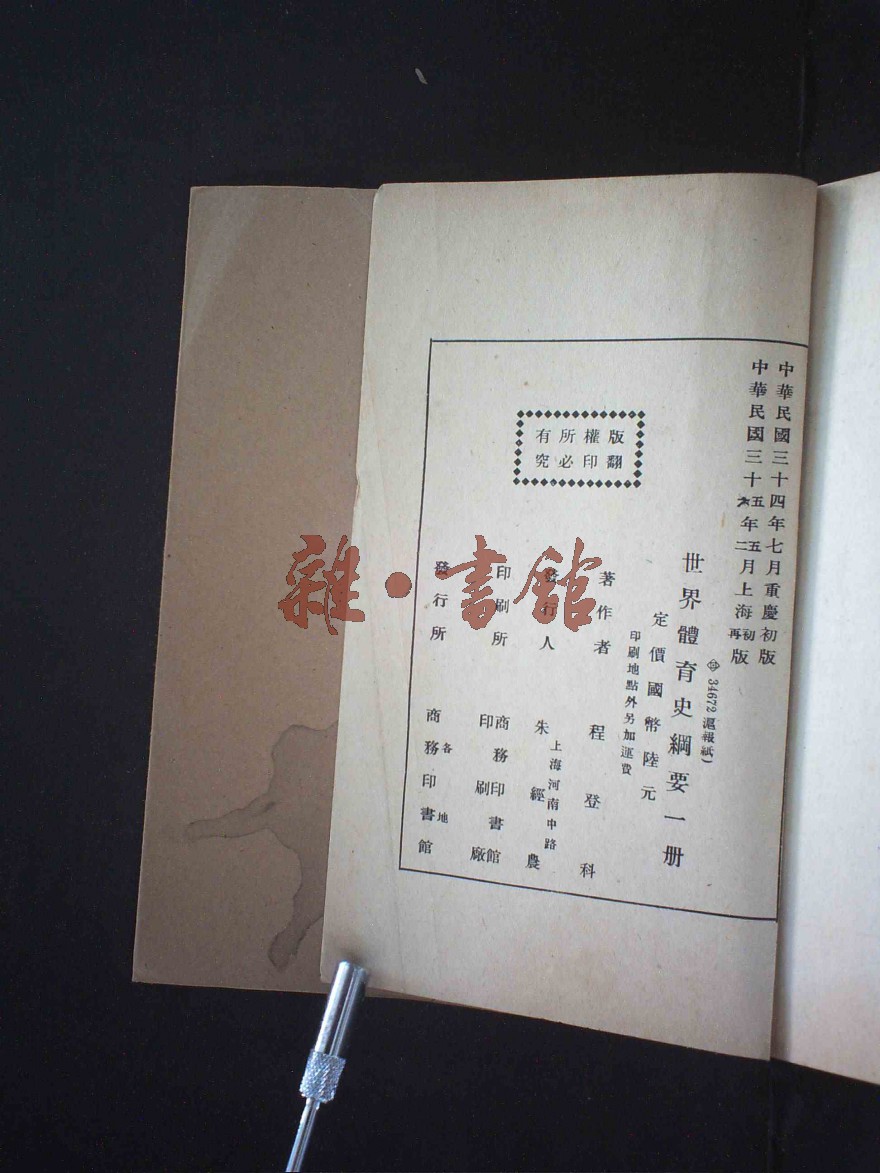 中華民國三十四年七月重慶初版
中華民國三十五六年五二月上海初再版
34672滬報紙)
世界體育史綱要一册
定價國幣陸元
印刷地點外另加運費
版權所有
翻印必究
著作者 程登科
發行人 上海河南中路 朱經農
印刷所 商務印書館印刷廠
發行所 各地 商務印書館
雜·書館